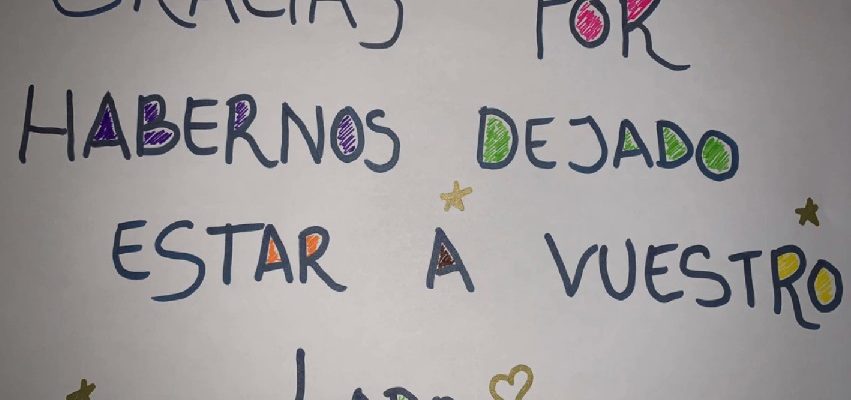 GRACIAS POR
HABERNOS DEJADO
ESTAR A VUESTRO
LADO